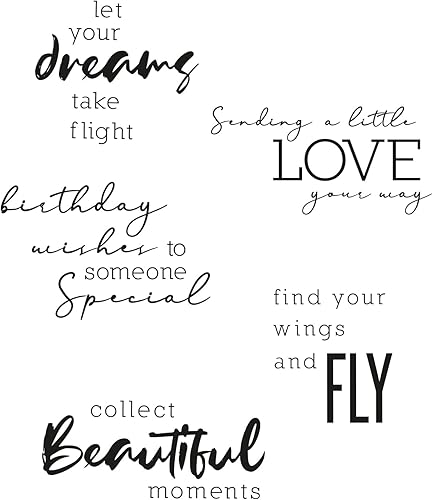 let
your
dreams
take
flight
Sending a little
LOVE
your way
birthday
wishes to
someone
Special
find your
wings
and FLY
collect
Beautiful
moments